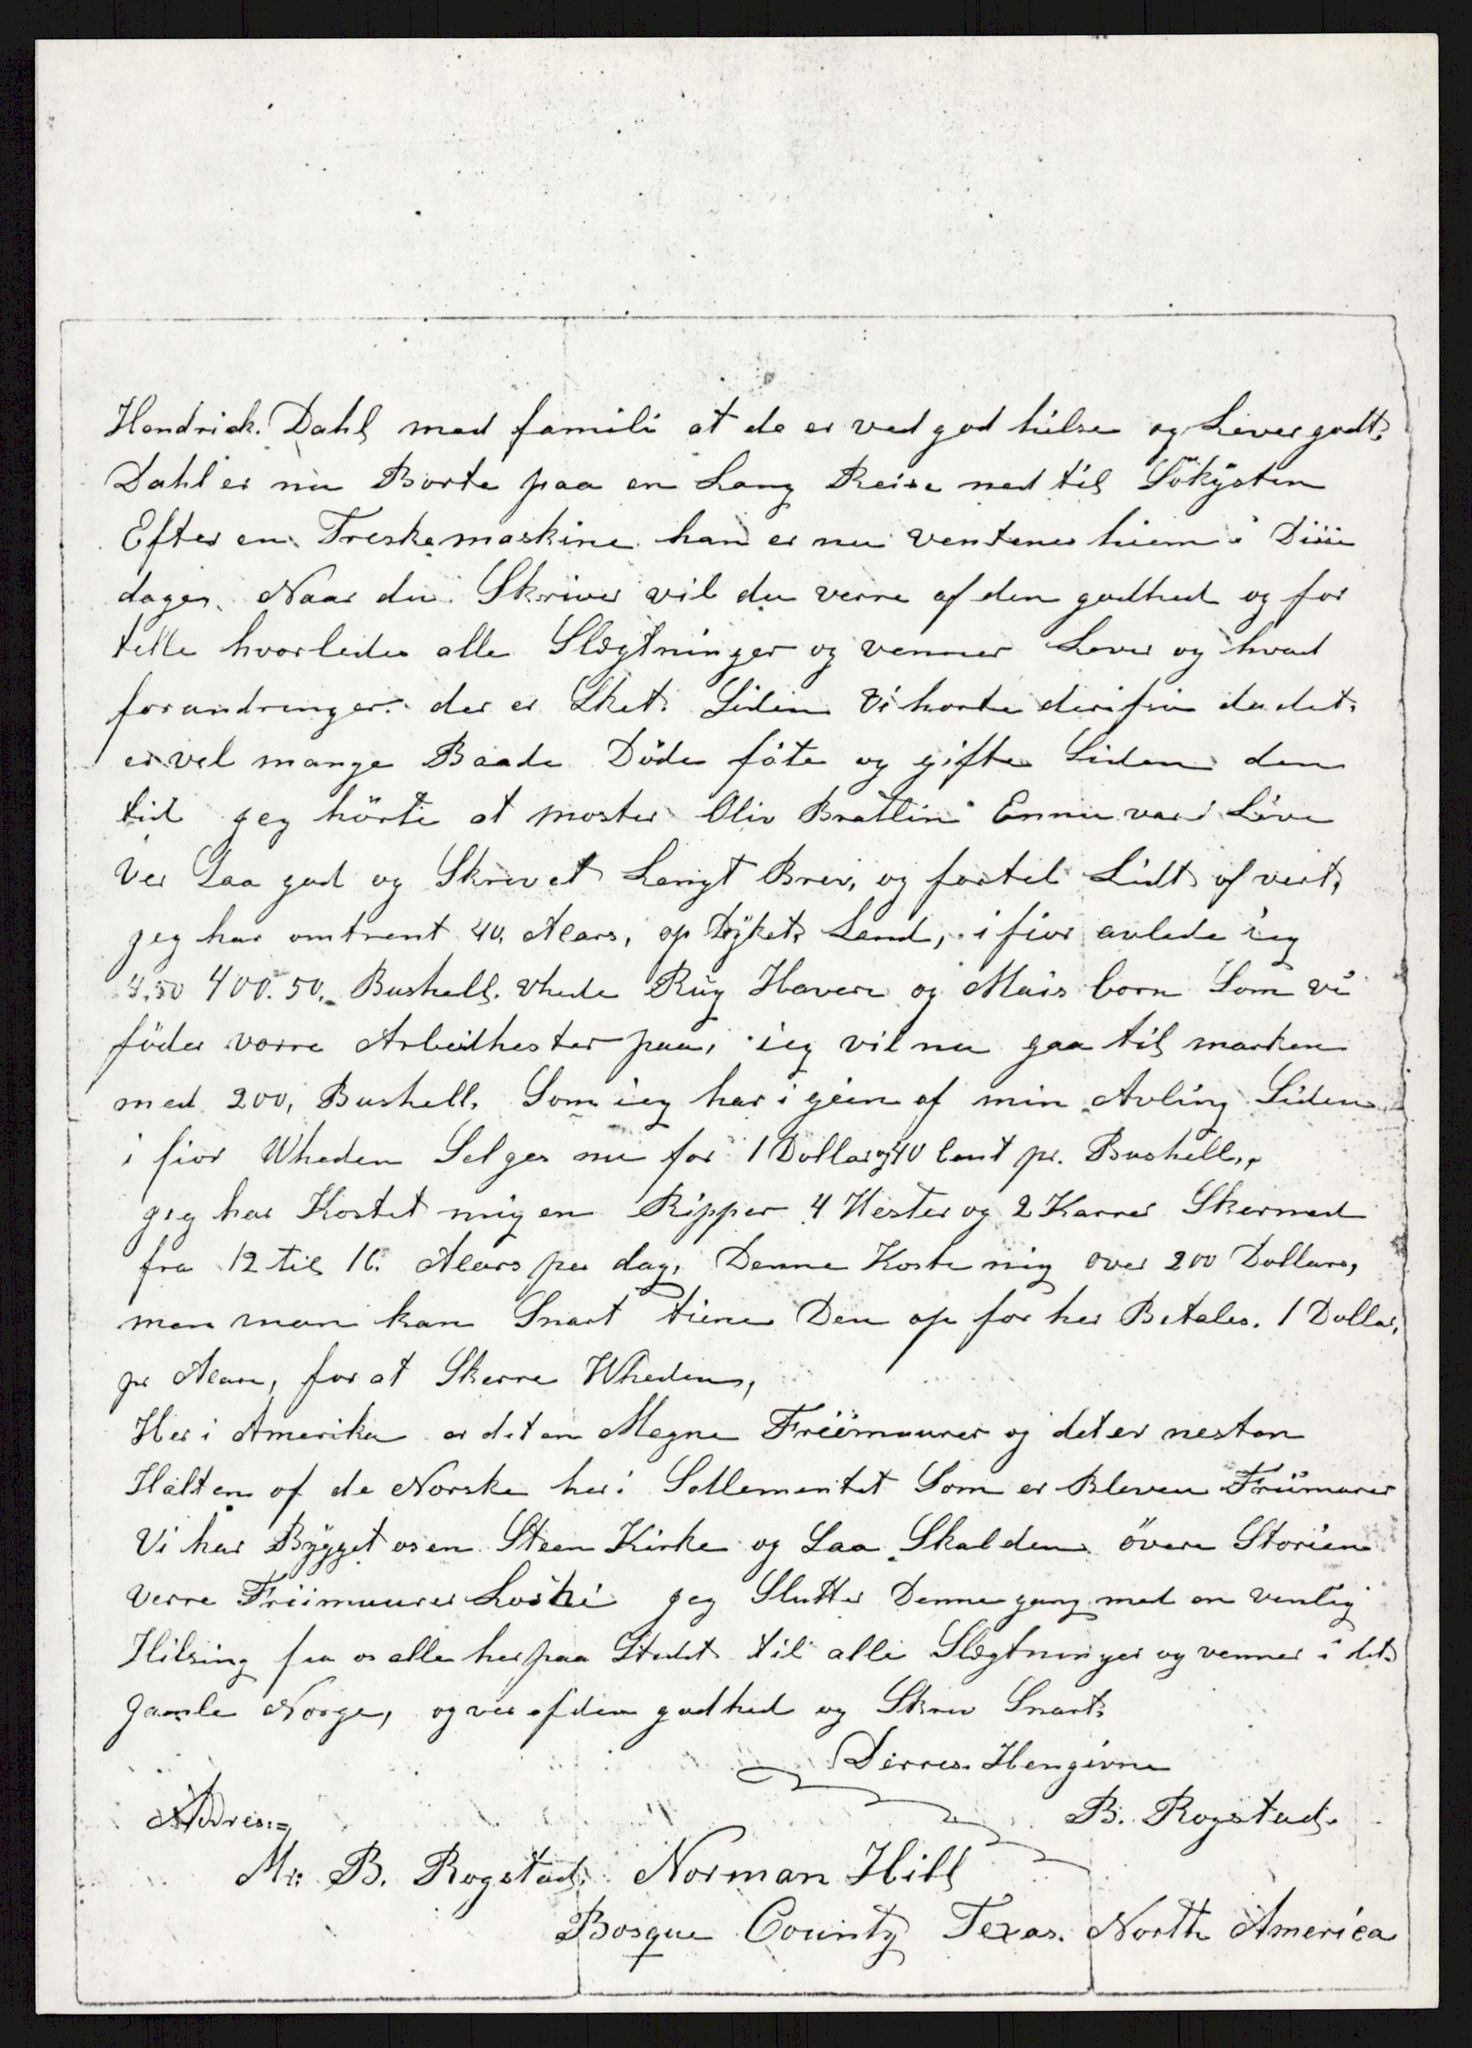 Hendrick. Dahl med famili at de er ved god hilse og Lever godt.
Dahl er nu Borte paa en Lang Reise ned til Sökysten
Efter en Treskemaskine han er nu ventenes hiem i Disse
dager. Naar du Skriver vil du verre af den godhed og for
telle hvorledes alle Slegtninger og venner Lever og hvad
forandringer der er Sket. Siden Vi horte derifra da det
er vel mange Baade Döde föte og gifte Siden den
tid jeg hörte at moster Oliv Bratlin Ennu var i Live
Ver Saa god og Skrev et Langt Brev, og fortel Lidt af vert,
jeg har omtrent 40, Acars, op Dyket Land, i fior avlede ieg
400.50. Bushell. vhede Rug Havere og Mais Corn Som vi
föder vorre Arbeidhester paa, ieg vil nu gaa til marken
med 200, Bushell. Som ieg har i gein af min Avling Siden
i fior Wheden Selges nu for 1 Dollar og 40 Cent pr. Bushell,
jeg har Kostet mig en Ripper 4 Hester og 2 Karrer Skermed
fra 12 til 16. Acars per dag, Denne Koste mig over 200 Dollars,
men man kan Snart tiene Den op for her Betales. 1 Dollar,
pr Acare, for at Skerre Wheden,
Her i Amerika er det en Megne Friimuurer og det er nesten
Halten af de Norske her i Setlementet Som er Bleven Friimurer
Vi har Bygget os en Steen Kirke og Saa Skal den övere Storien
verre Friimuurer Loshi jeg Slutter Denne gang med en venlig
Hilsing fra os alle her paa Stedet til alle Slegtninger og venner i det
gamle Norge, og ver af den godhed og Skrev Snart.
Derres Hengivne
B. Rogstad.
Adres:=
Mr. B. Rogstad. Norman Hill
Bosque County Texas. North America